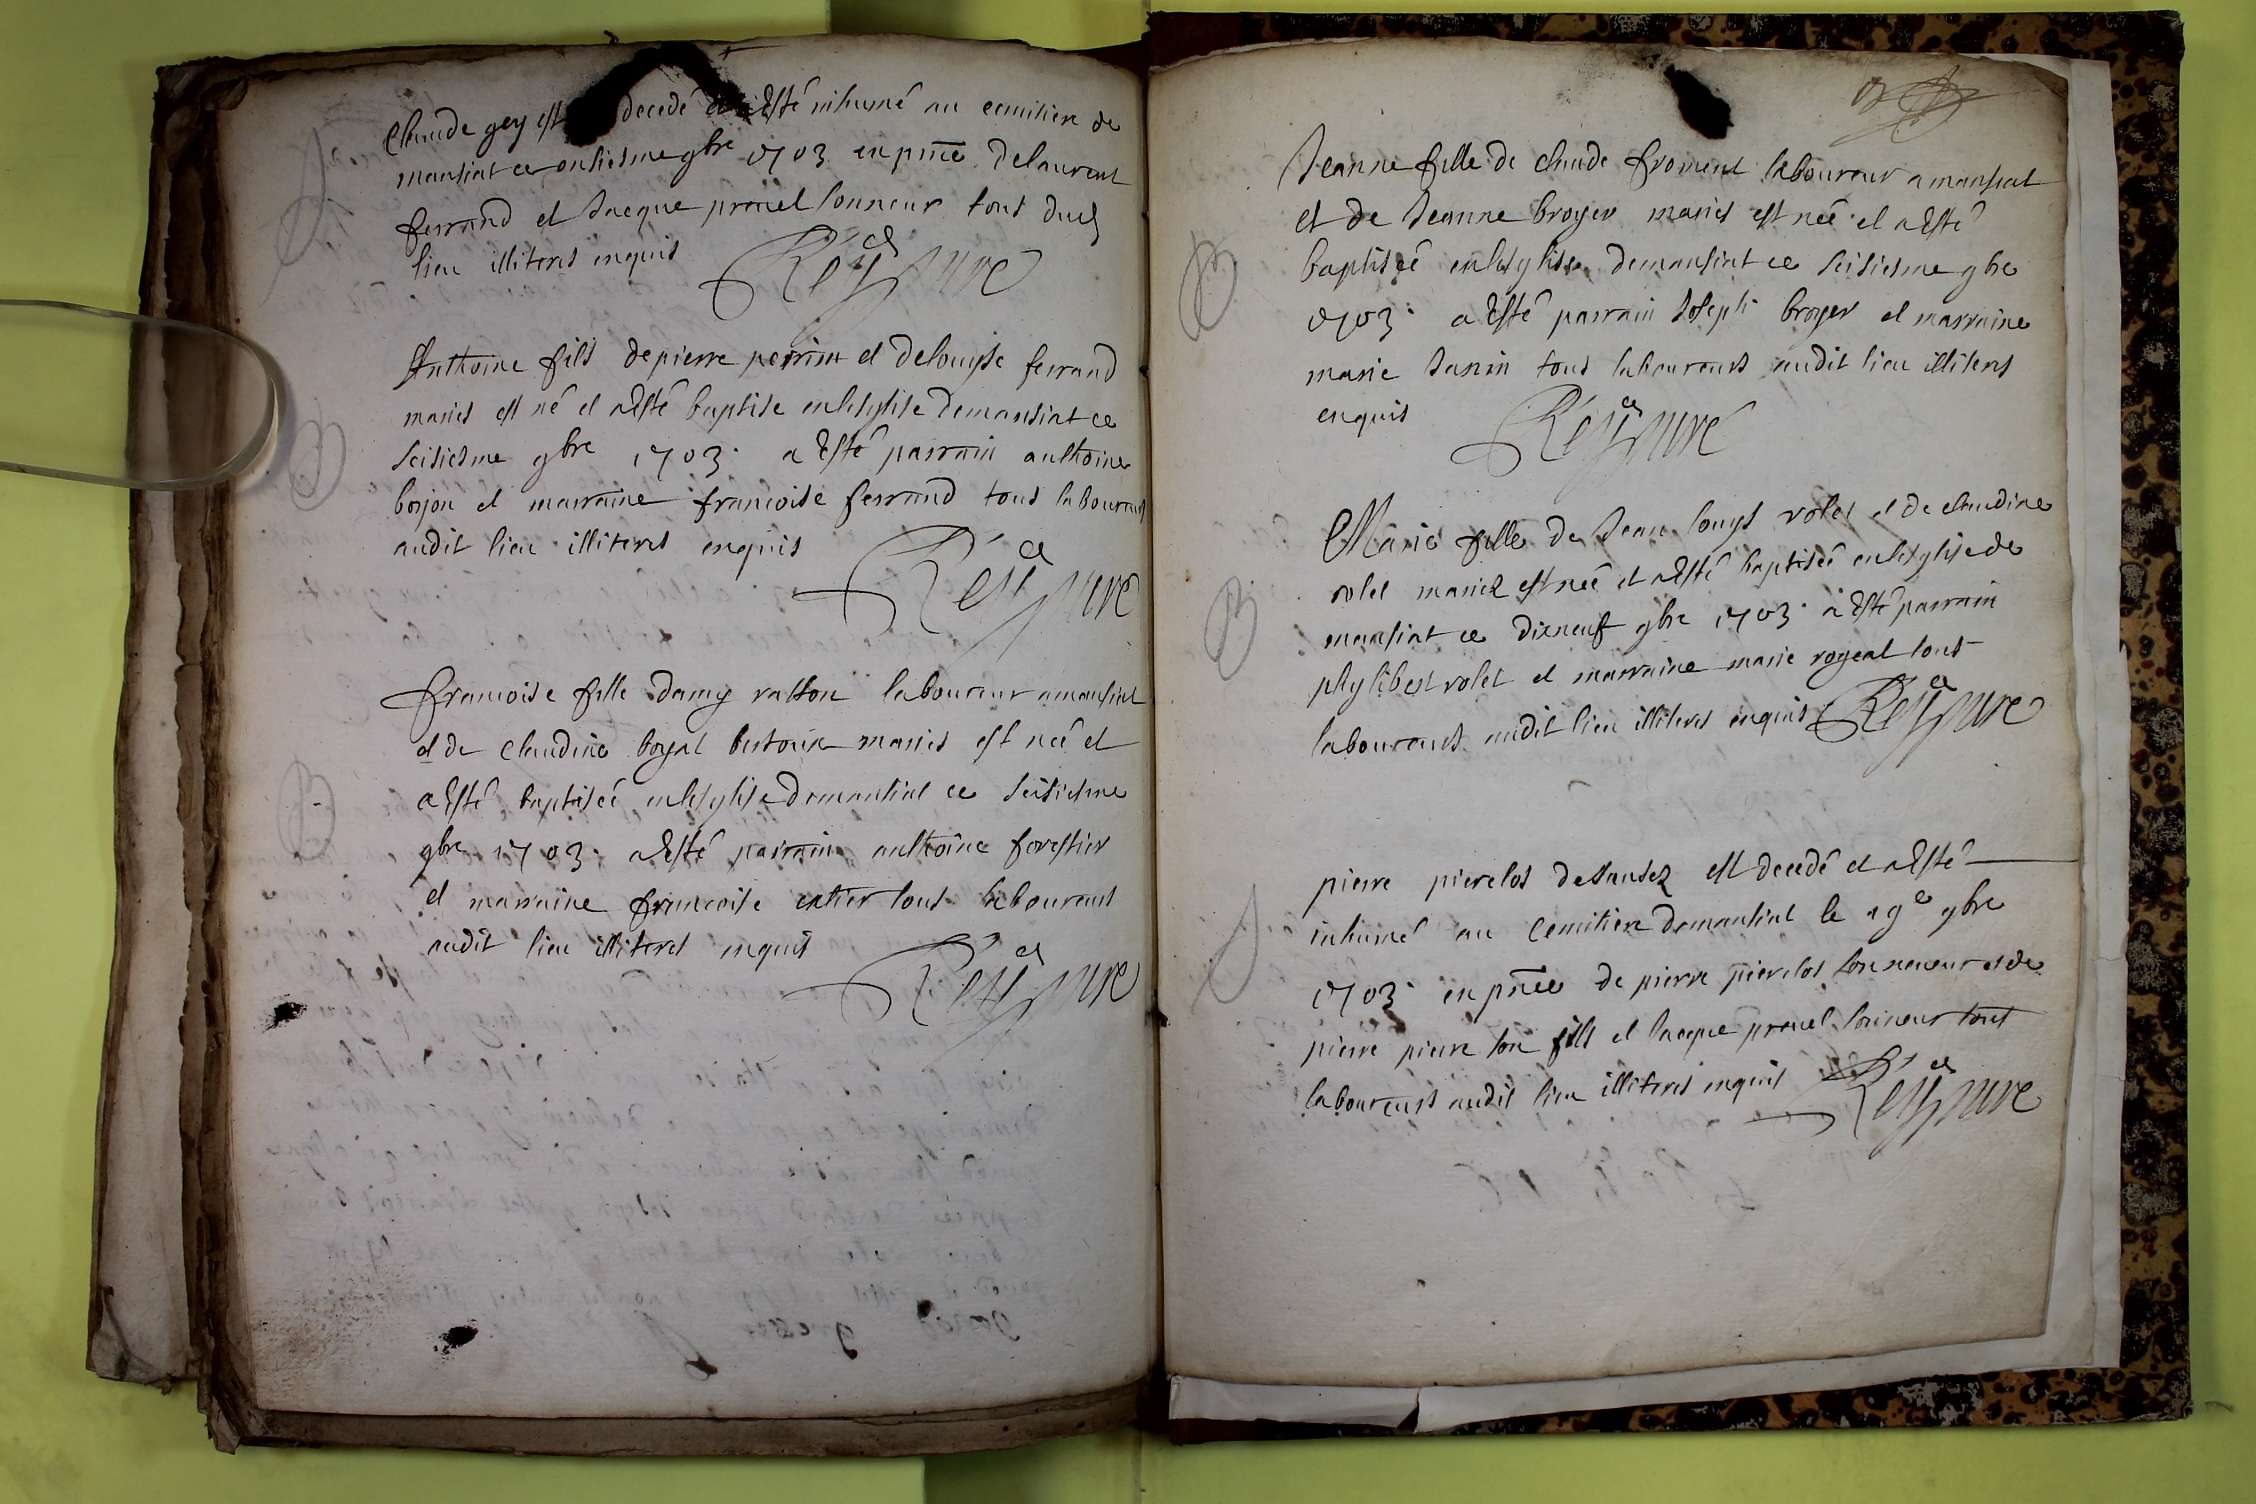 Claude gey est decedé et a Esté inhumé au cemitiere de
mansiat ce onsiesme 9bre 1703 en pnce delaurent
ferrand et Jacque prevel sonneur tous dud
lieu illiteres enquis
Rey ce pure
Anthoine fils de pierre perrin et de louyse ferrand
mariés est né et a Esté baptise en lesglise demansiat ce
seisiesme 9bre 1703. a Esté parrain anthoine
borjon et marraine francoise ferrand tous laboureurs
audit lieu illiteres enquis
Rey ce pure
francoise fille damy ratton laboureur a mansiat
et de claudine boyat bertoux mariés est neé et
a Esté baptiseé en lesglise demansiat ce seisiesme
9bre 1703. a Esté parrain anthoine forestier
et marraine francoise catier tous laboureurs
audit lieu illiteres enquis
Rey ce pure
B
B
Jeanne fille de claude froment laboureur a mansiat
et de Jeanne broyer mariés est neé et a Esté
baptiseé en lesglise demansiat ce seisiesme 9bre
1703. a Esté parrain Joseph broyer et marraine
marie Janin tous laboureurs audit lieu illiteres
enquis
Rey ce pure
Marie fille de Jean louys volet et de claudine
volet mariez est neé et a Esté baptiseé en lesglise de
mansiat ce dixneuf 9bre 1703. a Esté parrain
phylibert volet et marraine marie rogeat tous
laboureurs audit lieu illiteres enquis Rey ce pure
pierre pierelos desansez est decedé et a Esté
inhumé au Cemitiere demansiat le 19e 9bre
1703. en pnce de pierre pierelos son neveur et de
pierre pierre son fills et Jacque prevel sonneur tous
laboureurs audit lieu illiteres enquis
Rey ce pure
B
B